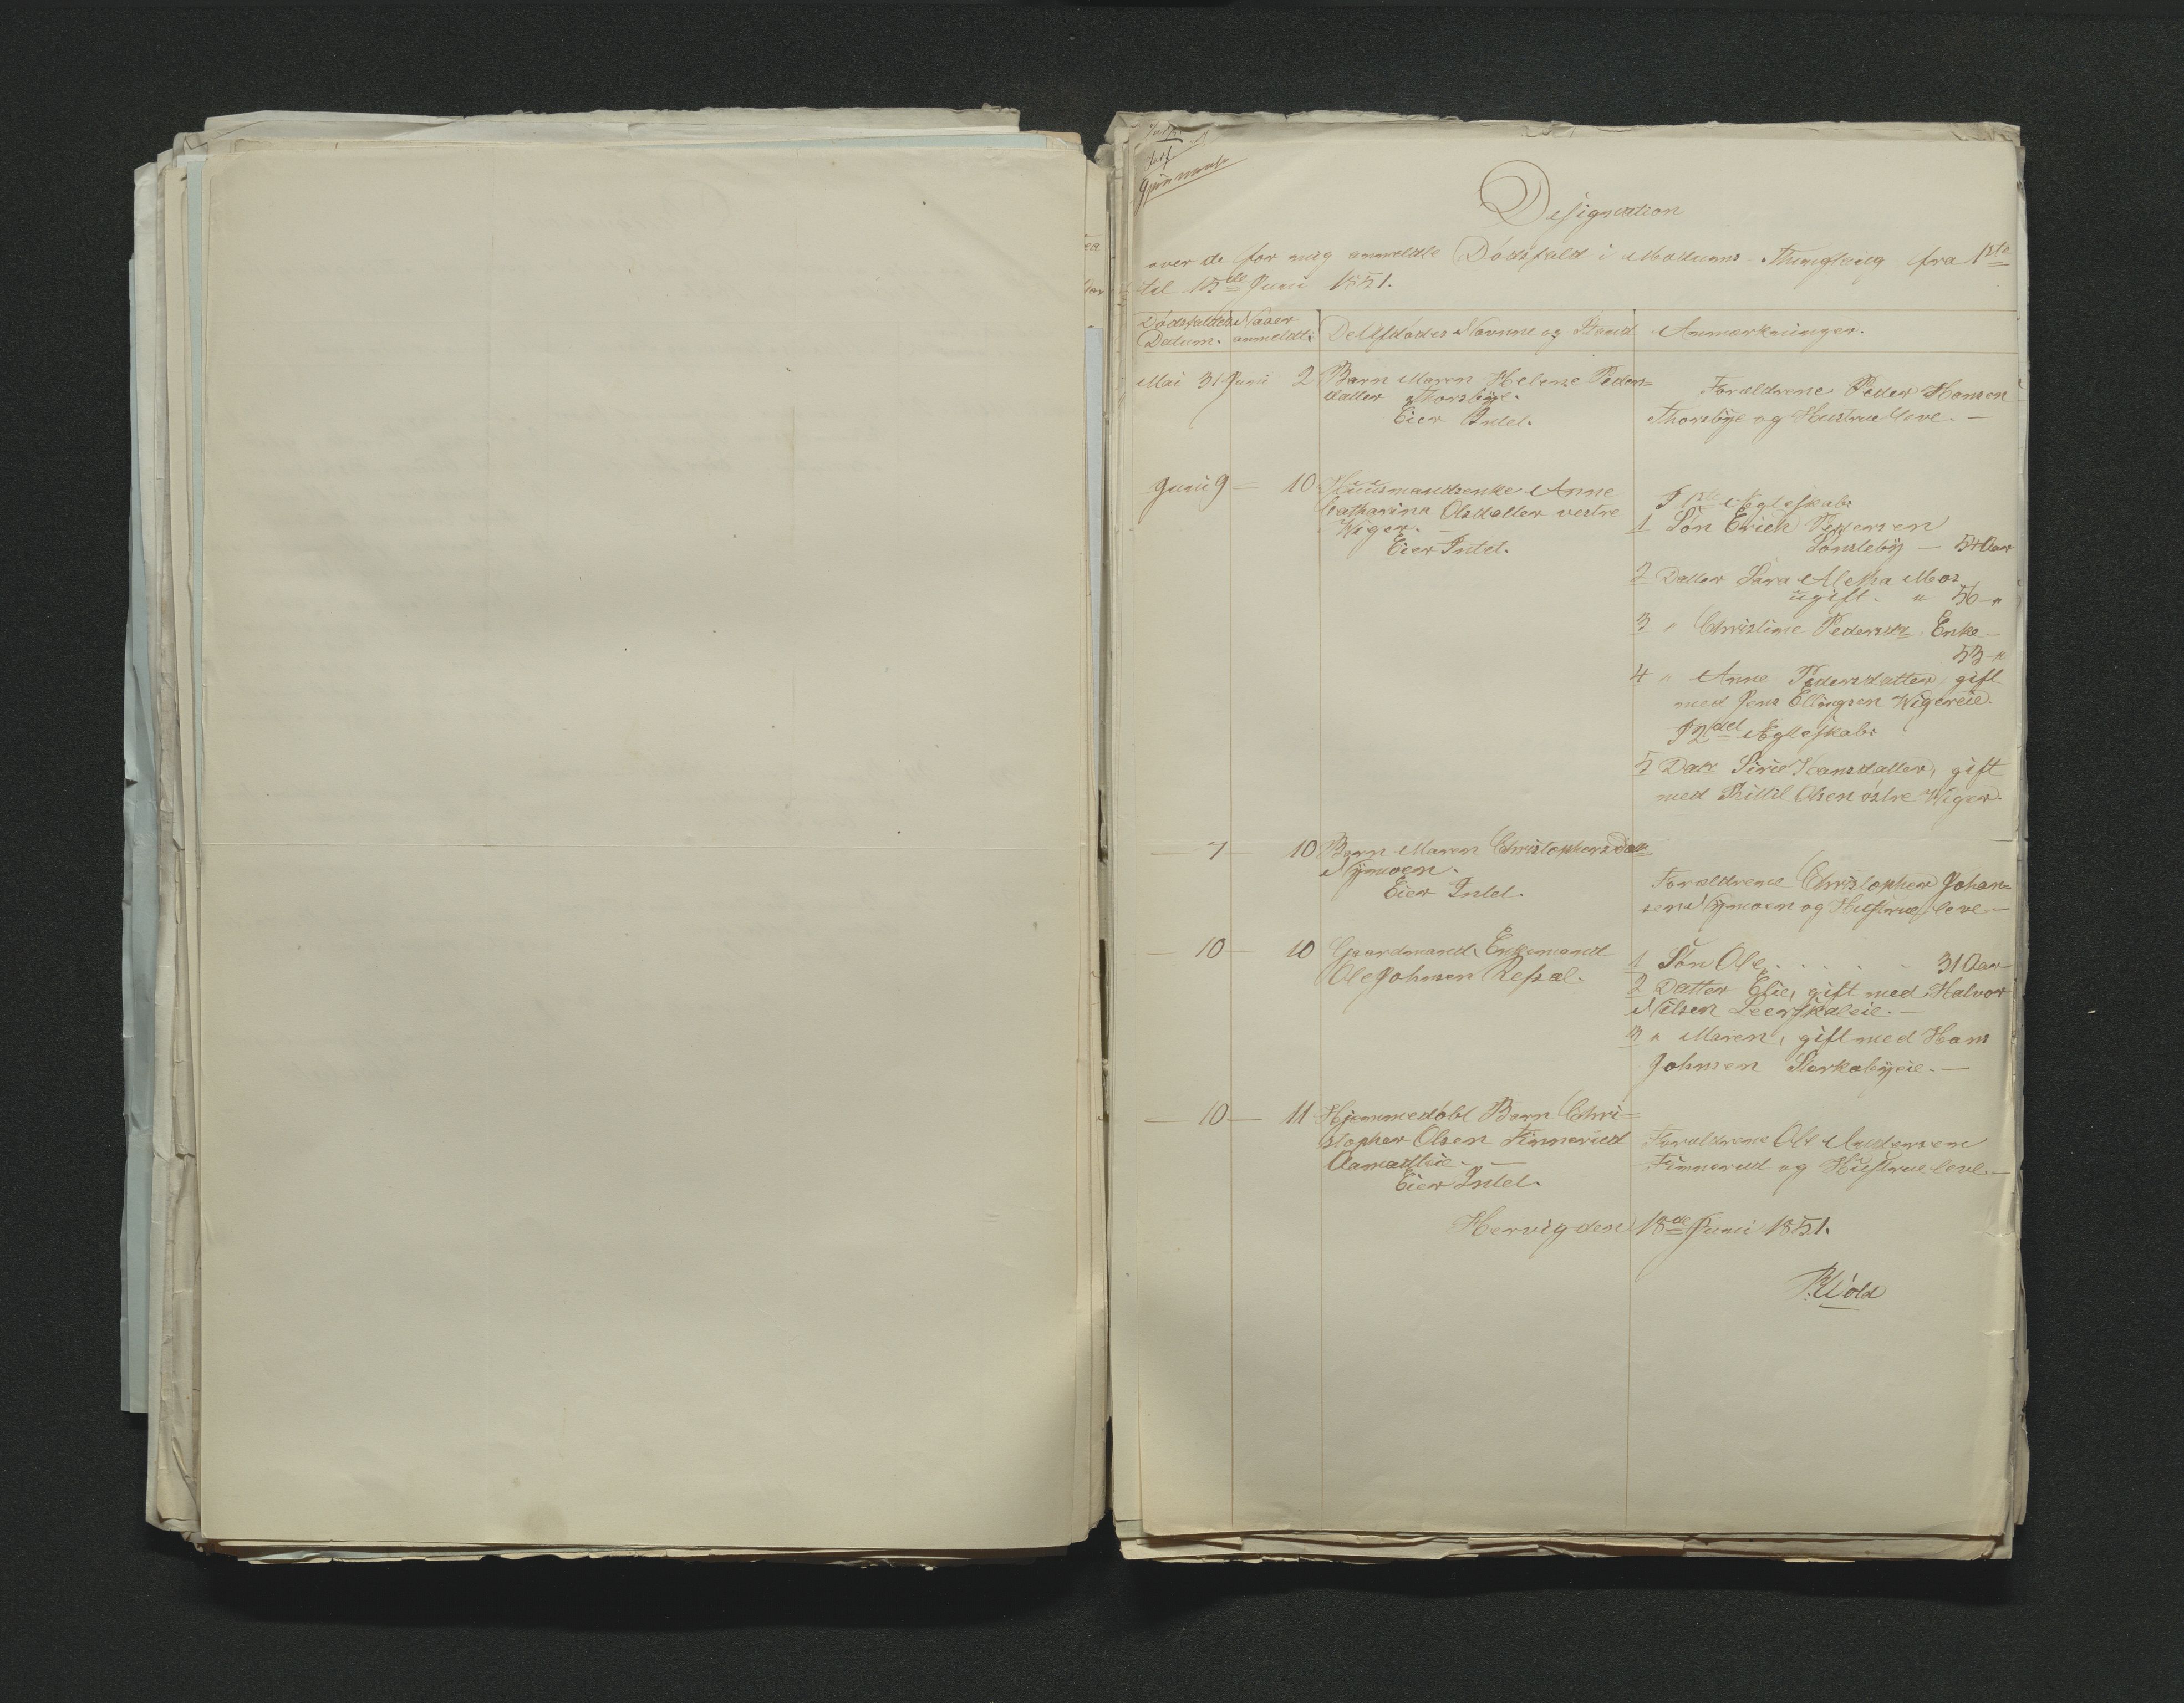 Designation
over de for mig anmeldte Dødsfald i Modums Thinglaug fra 1ste
til 15de Juni 1851.
Dødsfaldets Naar De Afdødes Navnne og Stand Anmærkninger.
Datum. anmeldt.
Mai 31 Juni 2 Barn Maren Helene Peders=
datter Thorsbye.
Eier Intet.
Forældrene Peder Hansen
Thorsbye og Hustrue leve. —
Juni 9 — 10 Huusmandsenke Anne
Catharina Olsdatter vestre
Wiger. —
Eier Intet.
I 1ste Ægteskab:
1 Søn Erich Pedersen
Sønsteby — 54 Aar
2 Datter Sara
ugift. " 56 "
3 " Christine Pedersdr Enke —
53 "
4 " Anne Pedersdatter, gift
med Jens Ellingsen Wigereie.
I 2det Ægteskab:
5 Datr Sirie Hansdatter, gift
med Kittil Olsen østre Wiger.
— 7 — 10 Barn Maren Christophersdatr
Nymoen.
Eier Intet.
Forældrene Christopher Johan=
sen Nymoen og Hustrue leve. —
— 10 — 10 Gaardmand, Enkemand
Ole Johnsen Refsal.
1 Søn Ole . . . . . 31 Aar
2 Datter Elie, gift med Halvor
Nilsen Leerskaleie. —
3 " Maren, gift med Hans
Johnsen Størkebyeie. —
— 10 — 11 Hjemmedøbt Barn Chri=
stopher Olsen Finnerud
Aamodteie. —
Eier Intet.
Forældrene Ole Andersen
Finnerud og Hustrue leve. —
Hervig den 18de Juni 1851.